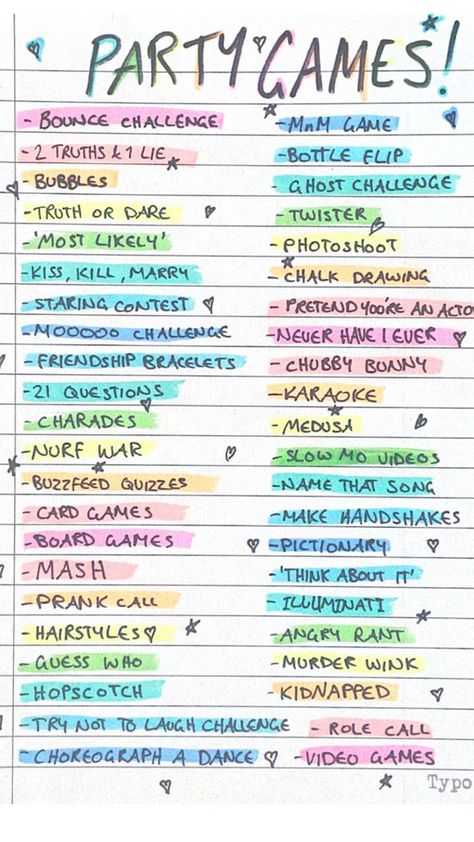 PARTY GAMES!
- BOUNCE CHALLENGE
- 2 TRUTHS & 1 LIE
- BUBBLES
- TRUTH OR DARE
- 'MOST LIKELY'
- KISS, KILL, MARRY
- STARING CONTEST
- MOOOOO CHALLENGE
- FRIENDSHIP BRACELETS
- 21 QUESTIONS
- CHARADES
- NURF WAR
- BUZZFEED QUIZZES
- CARD GAMES
- BOARD GAMES
- MASH
- PRANK CALL
- HAIRSTYLES
- GUESS WHO
- HOPSCOTCH
- TRY NOT TO LAUGH CHALLENGE
- CHOREOGRAPH A DANCE
- MnM GAME
- BOTTLE FLIP
- GHOST CHALLENGE
- TWISTER
- PHOTOSHOOT
- CHALK DRAWING
- PRETEND YOU'RE AN ACTO
- NEVER HAVE I EVER
- CHUBBY BUNNY
- KARAOKE
- MEDUSA
- SLOW MO VIDEOS
- NAME THAT SONG
- MAKE HANDSHAKES
- PICTIONARY
- 'THINK ABOUT IT'
- ILLUMINATI
- ANGRY RANT
- MURDER WINK
- KIDNAPPED
- ROLE CALL
- VIDEO GAMES
Typo